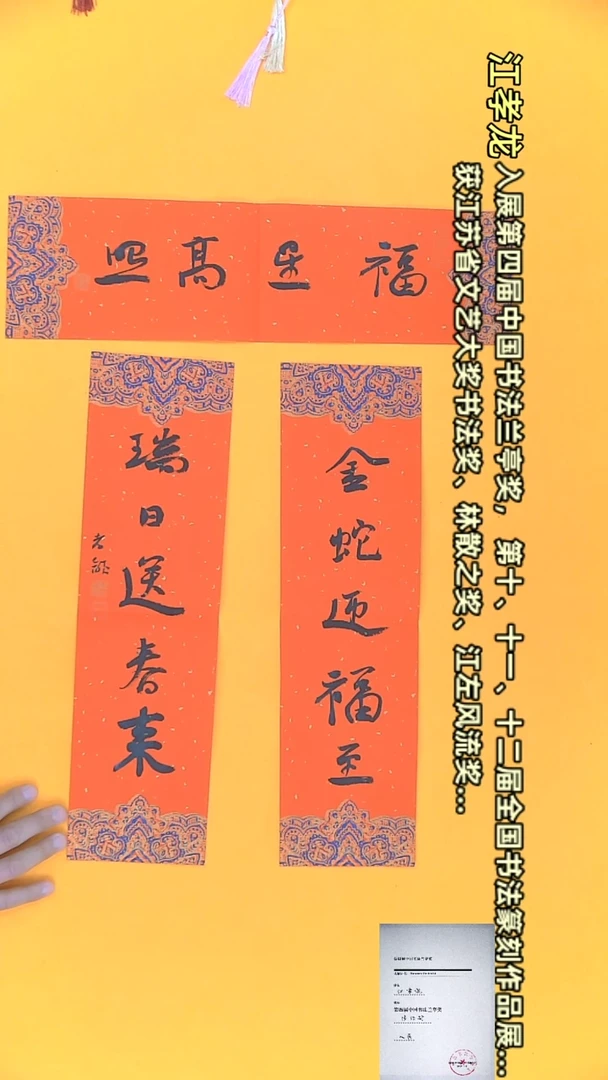 福星高照
金蛇迎福至
瑞日送春来
江孝龙
入展第四届中国书法兰亭奖，第十、十一、十二届全国书法篆刻作品展...
获江苏省文艺大奖书法奖、林散之奖、江左风流奖...
第四届中国书法兰亭奖